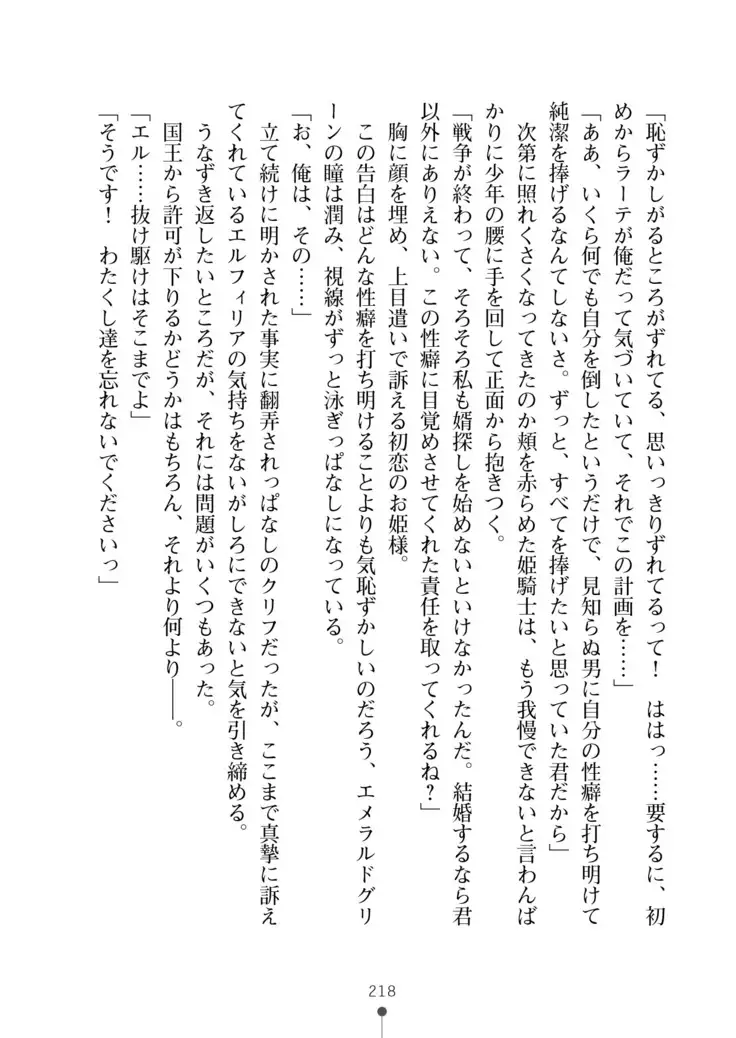 「恥ずかしがるところがずれてる、思いっきりずれてるって！　ははっ……要するに、初
めからラーテが俺だって気づいていて、それでこの計画を……」
「ああ、いくら何でも自分を倒したというだけで、見知らぬ男に自分の性癖を打ち明けて
純潔を捧げるなんてしないさ。ずっと、すべてを捧げたいと思っていた君だから」
　次第に照れくさくなってきたのか頬を赤らめた姫騎士は、もう我慢できないと言わんば
かりに少年の腰に手を回して正面から抱きつく。
「戦争が終わって、そろそろ私も婿探しを始めないといけなかったんだ。結婚するなら君
以外にありえない。この性癖に目覚めさせてくれた責任を取ってくれるね？」
　胸に顔を埋め、上目遣いで訴える初恋のお姫様。
　この告白はどんな性癖を打ち明けることよりも気恥ずかしいのだろう、エメラルドグリ
ーンの瞳は潤み、視線がずっと泳ぎっぱなしになっている。
「お、俺は、その……」
　立て続けに明かされた事実に翻弄されっぱなしのクリフだったが、ここまで真摯に訴え
てくれているエルフィリアの気持ちをないがしろにできないと気を引き締める。
　うなずき返したいところだが、それには問題がいくつもあった。
　国王から許可が下りるかどうかはもちろん、それより何より――。
「エル……抜け駆けはそこまでよ」
「そうです！　わたくし達を忘れないでくださいっ」
218